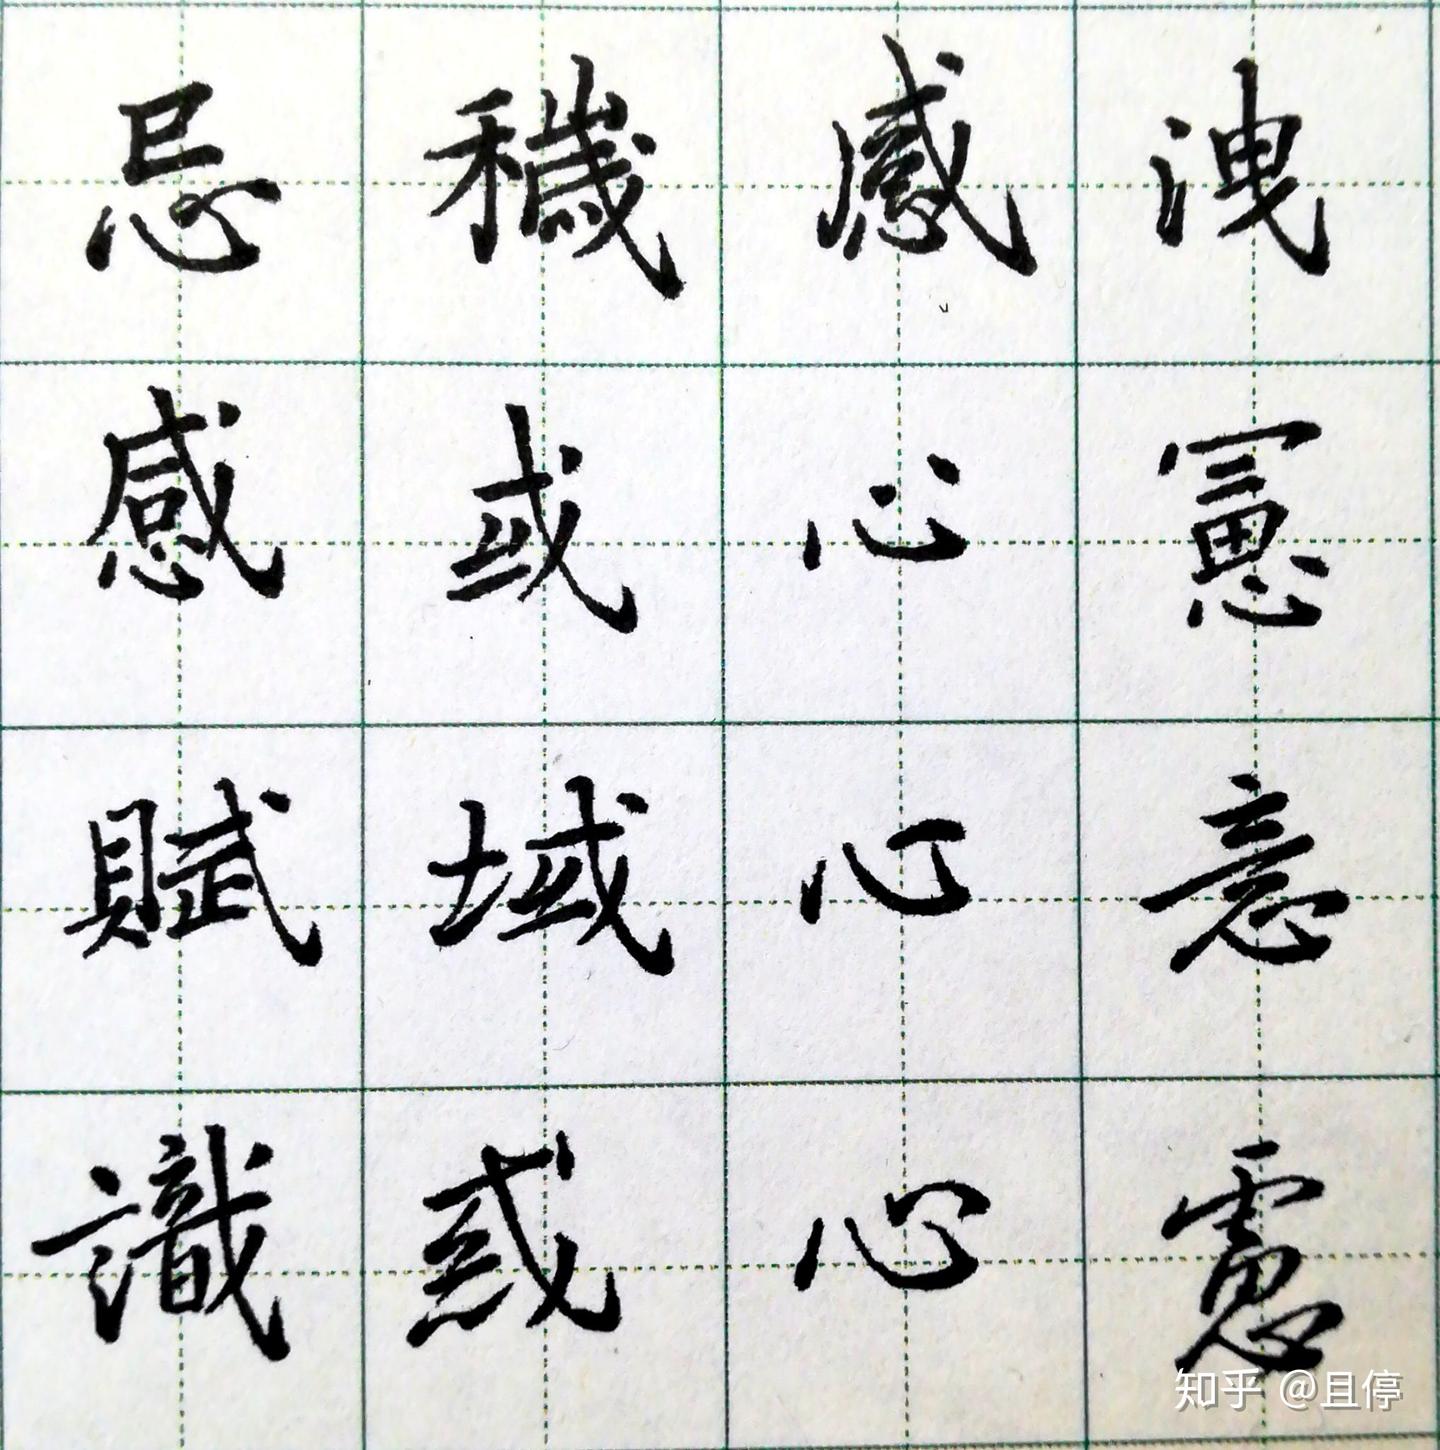 忌穢感洩
感或心憲
賦域心意
識惑心慮
知乎 @且停